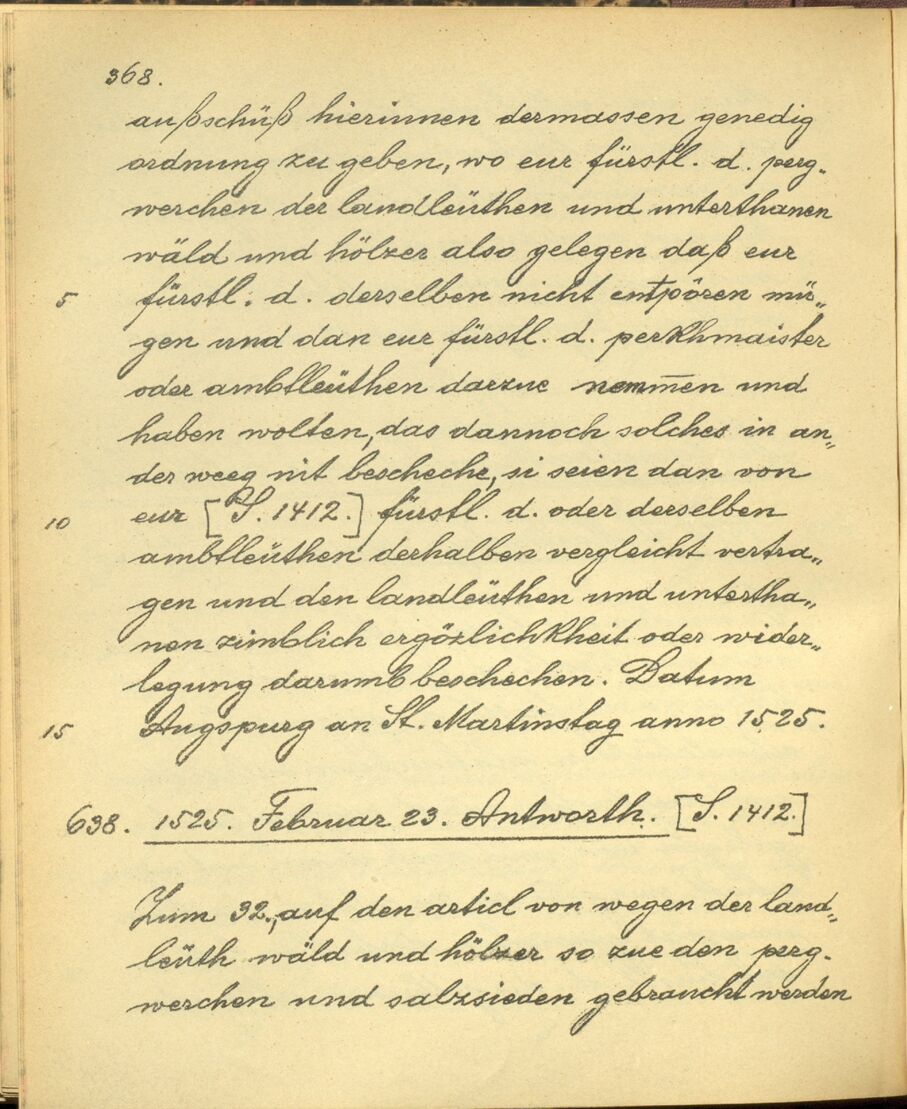 368.
außschüß hierinnen dermassen genedig
ordnung zu geben, wo eur fürstl. d. perg-
werchen der landleüthen und unterthanen
wäld und hölzer also gelegen daß eur
5 fürstl. d. derselben nicht entpören mü„
gen und dan eur fürstl. d. perkhmaister
oder ambtleüthen darzue nemmen und
haben wolten, das dannoch solches in an„
der weeg nit bescheche, si seien dan von
10 eur [S. 1412.] fürstl. d. oder derselben
ambtleüthen derhalben vergleicht vertra„
gen und den landleüthen und untertha„
nen zimblich ergözlichkheit oder wider„
legung darumb beschechen. Datum
15 Augspurg an St. Martinstag anno 1525.
638. 1525. Februar 23. Antworth. [S. 1412.]
Zum 32., auf den articl von wegen der land„
leüth wäld und hölzer so zue den perg-
werchen und salzsieden gebraucht werden